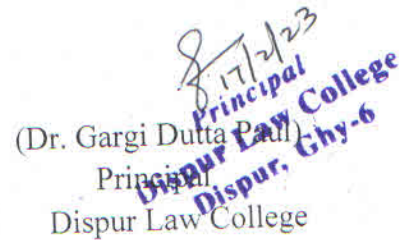 17/2/23
Principal
Dispur Law College
Dispur, Ghy-6
(Dr. Gargi Dutta Paul)
Principal
Dispur Law College